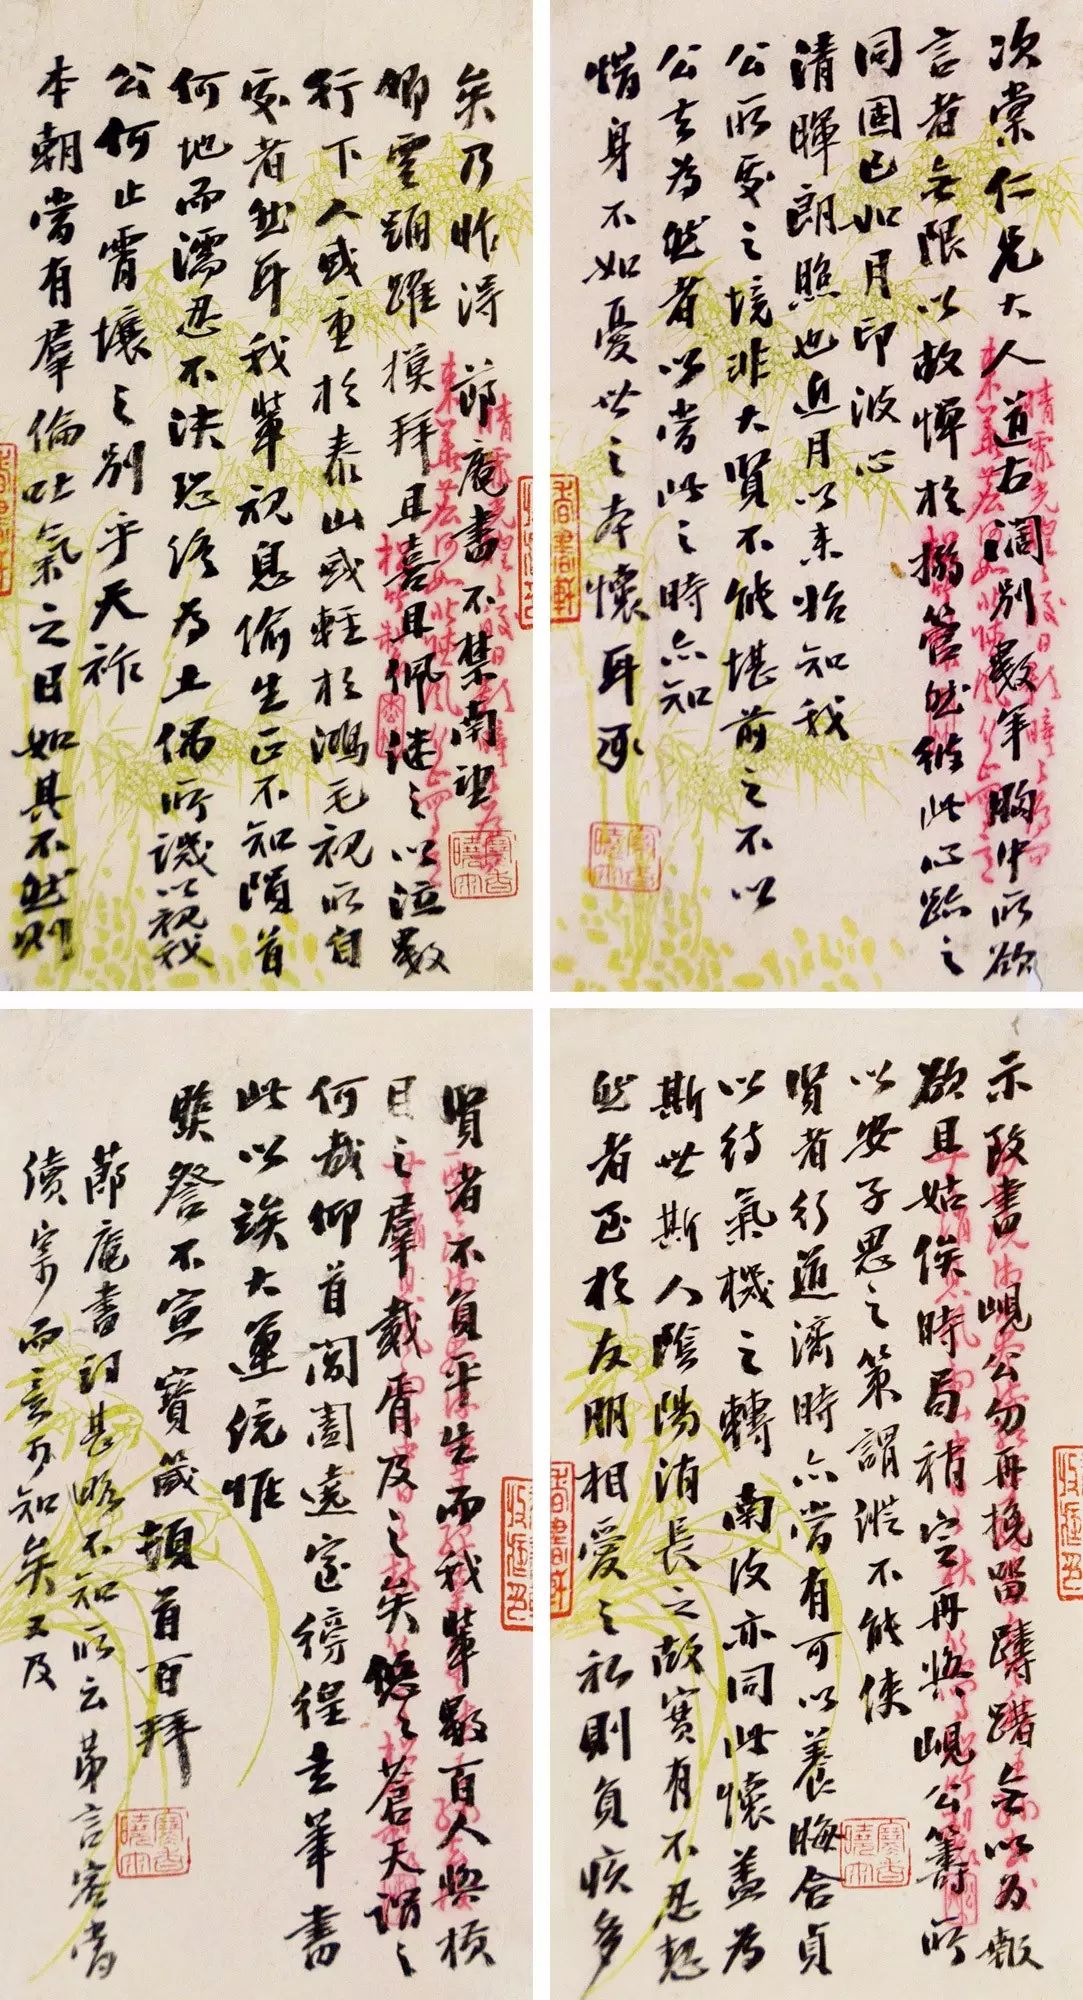 次棠仁兄大人道右阔别数年胸中所欲
言者無限以故憚於搦管然彼此心跡之
同固已如月印波心
清暉朗照也近月以来始知我
公所受之境非大賢不能堪前之不以
公去為然者以當此之時亦知
惜身不如憂世之本懷耳承
示改書院峴公勿再挽留躊躇無以為報
欲且姑俟時局稍定再與峴公籌所
以安子思之策謂從不能使
賢者行道濟時亦當有可以養晦含貞
以待氣機之轉南皮亦同此懷蓋為
斯世斯人陰陽消長之故實有不忍恝
然者至於友朋相愛之私則負疚多
矣乃昨得節庵書不禁南望
卿雲踊躍摸拜且喜且佩迷之以泣數
行下人或重於泰山或輕於鴻毛視所自
處者然耳我輩視息偷生正不知隕首
何地而濡忍不決恐終為土偶所譏以視我
公何止霄壤之别乎天祚
本朝當有羣倫吐氣之日如其不然則
賢者不負平生而我輩數百人將横
目之羣戴胥及之矣悠悠蒼天謂之
何哉仰首閶闔遠寄徬徨走筆書
此以誒大運統惟
鑒詧不宣寶箴頓首百拜
節庵書詞甚晦不知所云第言客嘗
續寄而意可知矣又及
寒香曉雨
寒香曉雨
寒香曉雨
寒香曉雨